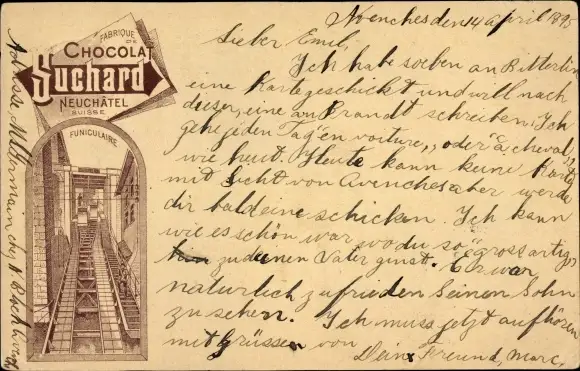 FABRIQUE
DE
CHOCOLAT
Suchard
NEUCHÂTEL
SUISSE
FUNICULAIRE
Avenches den 14 april 1895
Lieber Emil,
Ich habe soeben an Bitterlin
eine Karte geschickt und will nach
dieser, eine an Brandt schreiben. Ich
gehe jeden Tag "en voiture", oder "à cheval",
wie heut. Heute kann keine Karte
mit Sicht von Avenches aber werde
dir bald eine schicken. Ich kann
wie es schön war wo du so "grossartig"
zu deinen Vater gingst. Er war
natürlich zufrieden seinen Sohn
zu sehen. Ich muss jetzt aufhören
mit Grüssen von
Dein Freund, Marc.